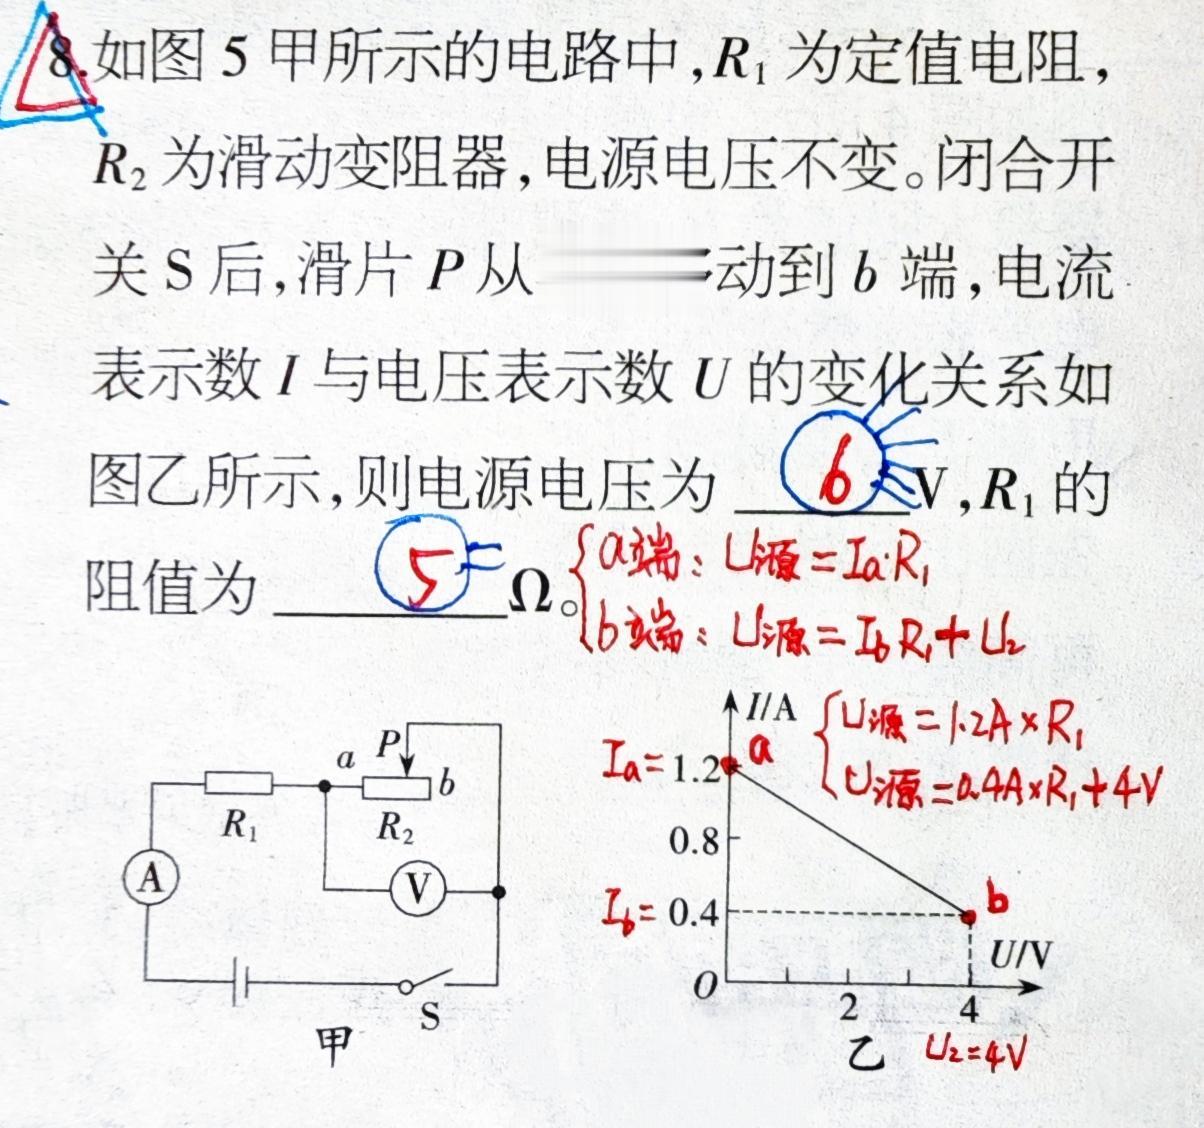 8.如图5甲所示的电路中,R₁为定值电阻,
R₂为滑动变阻器,电源电压不变。闭合开
关S后,滑片P从 动到b端,电流
表示数I与电压表示数U的变化关系如
图乙所示,则电源电压为 6 V,R₁的
阻值为 5 Ω。
a端:U源=Ia·R₁
b端:U源=IbR₁+U₂
a P b
R₁ R₂
A V
S
甲
I/A
U源=1.2A×R₁
U源=0.4A×R₁+4V
Ia=1.2 a
0.8
Ib=0.4 b
U/V
O 2 4
乙 U₂=4V